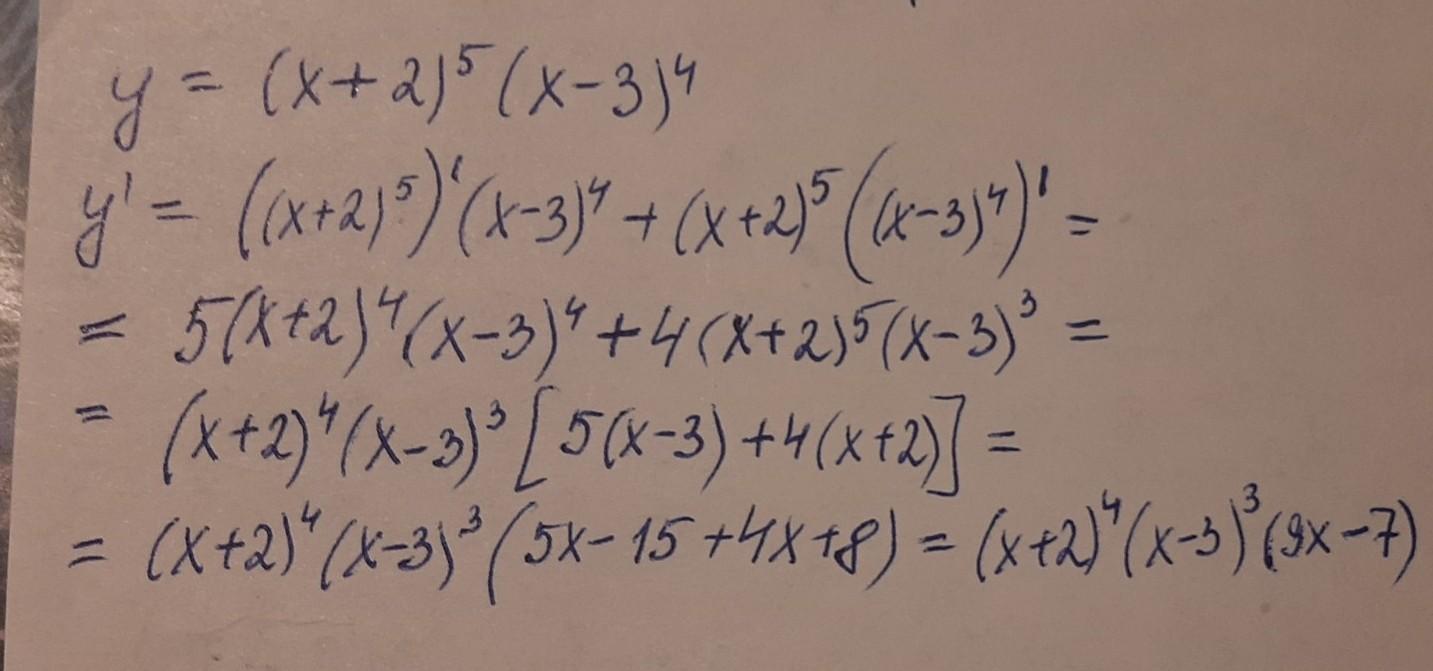 y = (x+2)⁵(x-3)⁴
y' = ((x+2)⁵)'(x-3)⁴ + (x+2)⁵((x-3)⁴)' =
= 5(x+2)⁴(x-3)⁴ + 4(x+2)⁵(x-3)³ =
= (x+2)⁴(x-3)³[5(x-3)+4(x+2)] =
= (x+2)⁴(x-3)³(5x-15+4x+8) = (x+2)⁴(x-3)³(9x-7)